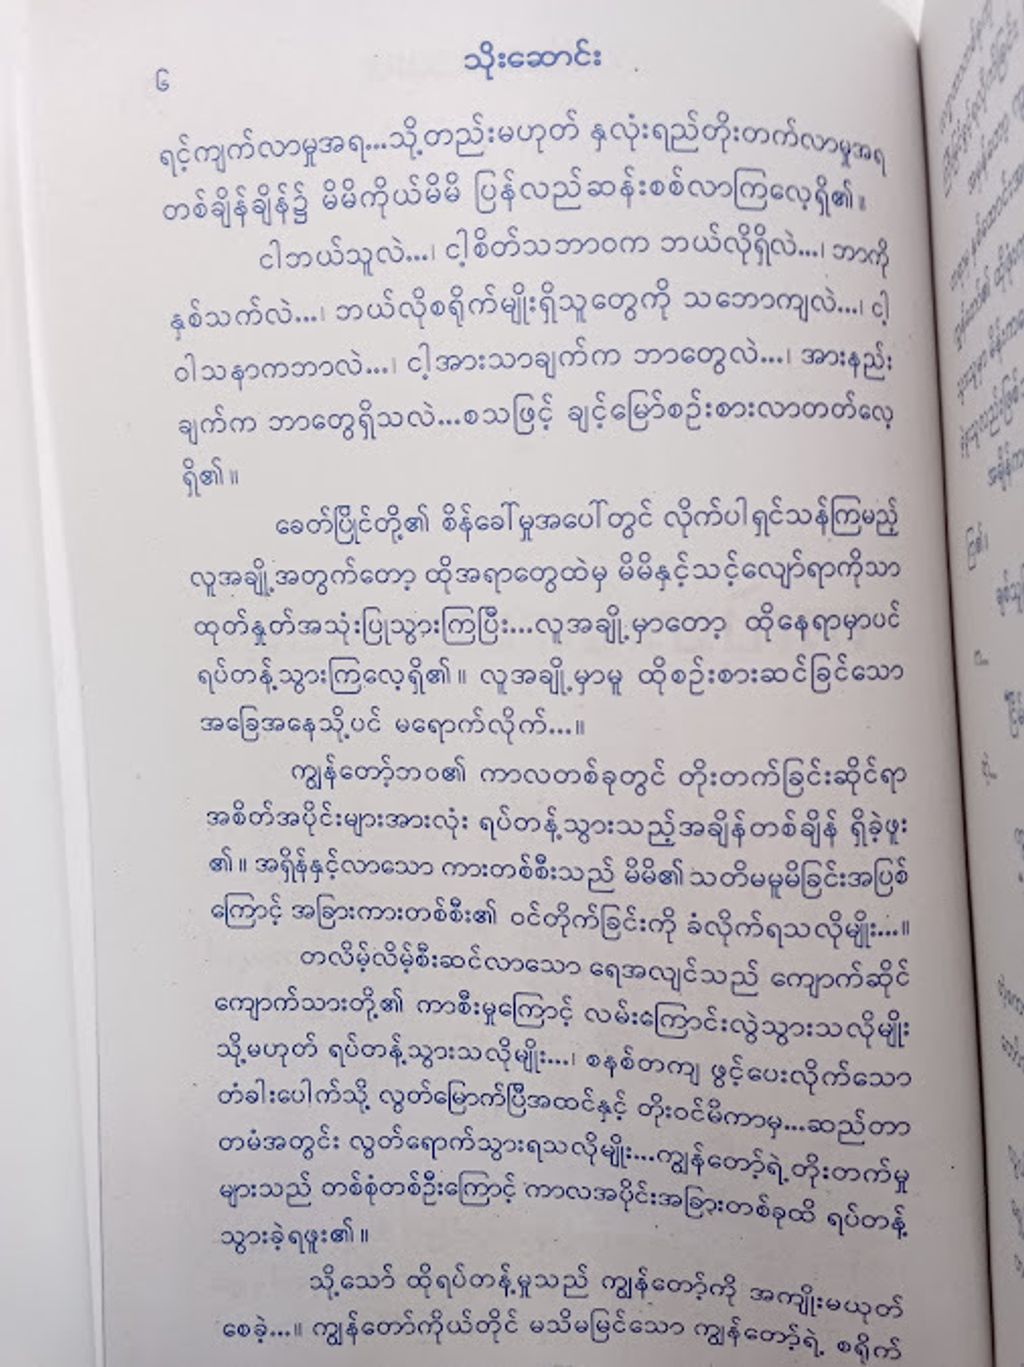 သိုးဆောင်း
၆
ရင့်ကျက်လာမှုအရ...သို့တည်းမဟုတ် နှလုံးရည်တိုးတက်လာမှုအရ
တစ်ချိန်ချိန်၌ မိမိကိုယ်မိမိ ပြန်လည်ဆန်းစစ်လာကြလေ့ရှိ၏။
ငါဘယ်သူလဲ...၊ ငါ့စိတ်သဘာဝက ဘယ်လိုရှိလဲ...၊ ဘာကို
နှစ်သက်လဲ...၊ ဘယ်လိုစရိုက်မျိုးရှိသူတွေကို သဘောကျလဲ...၊ ငါ့
ဝါသနာကဘာလဲ...၊ ငါ့အားသာချက်က ဘာတွေလဲ...၊ အားနည်း
ချက်က ဘာတွေရှိသလဲ...စသဖြင့် ချင့်မြော်စဉ်းစားလာတတ်လေ့
ရှိ၏။
ခေတ်ပြိုင်တို့၏ စိန်ခေါ်မှုအပေါ်တွင် လိုက်ပါရှင်သန်ကြမည့်
လူအချို့အတွက်တော့ ထိုအရာတွေထဲမှ မိမိနှင့်သင့်လျော်ရာကိုသာ
ထုတ်နှုတ်အသုံးပြုသွားကြပြီး...လူအချို့မှာတော့ ထိုနေရာမှာပင်
ရပ်တန့်သွားကြလေ့ရှိ၏။ လူအချို့မှာမူ ထိုစဉ်းစားဆင်ခြင်သော
အခြေအနေသို့ပင် မရောက်လိုက်...။
ကျွန်တော့်ဘဝ၏ ကာလတစ်ခုတွင် တိုးတက်ခြင်းဆိုင်ရာ
အစိတ်အပိုင်းများအားလုံး ရပ်တန့်သွားသည့်အချိန်တစ်ချိန် ရှိခဲ့ဖူး
၏။ အရှိန်နှင့်လာသော ကားတစ်စီးသည် မိမိ၏သတိမမူမိခြင်းအပြစ်
ကြောင့် အခြားကားတစ်စီး၏ ဝင်တိုက်ခြင်းကို ခံလိုက်ရသလိုမျိုး...။
တလိမ့်လိမ့်စီးဆင်လာသော ရေအလျင်သည် ကျောက်ဆိုင်
ကျောက်သားတို့၏ ကာစီးမှုကြောင့် လမ်းကြောင်းလွဲသွားသလိုမျိုး
သို့မဟုတ် ရပ်တန့်သွားသလိုမျိုး...၊ စနစ်တကျ ဖွင့်ပေးလိုက်သော
တံခါးပေါက်သို့ လွတ်မြောက်ပြီအထင်နှင့် တိုးဝင်မိကာမှ...ဆည်တာ
တမံအတွင်း လွတ်ရောက်သွားရသလိုမျိုး...ကျွန်တော့်ရဲ့တိုးတက်မှု
များသည် တစ်စုံတစ်ဦးကြောင့် ကာလအပိုင်းအခြားတစ်ခုထိ ရပ်တန့်
သွားခဲ့ရဖူး၏။
သို့သော် ထိုရပ်တန့်မှုသည် ကျွန်တော့်ကို အကျိုးမယုတ်
စေခဲ့...။ ကျွန်တော်ကိုယ်တိုင် မသိမမြင်သော ကျွန်တော့်ရဲ့ စရိုက်